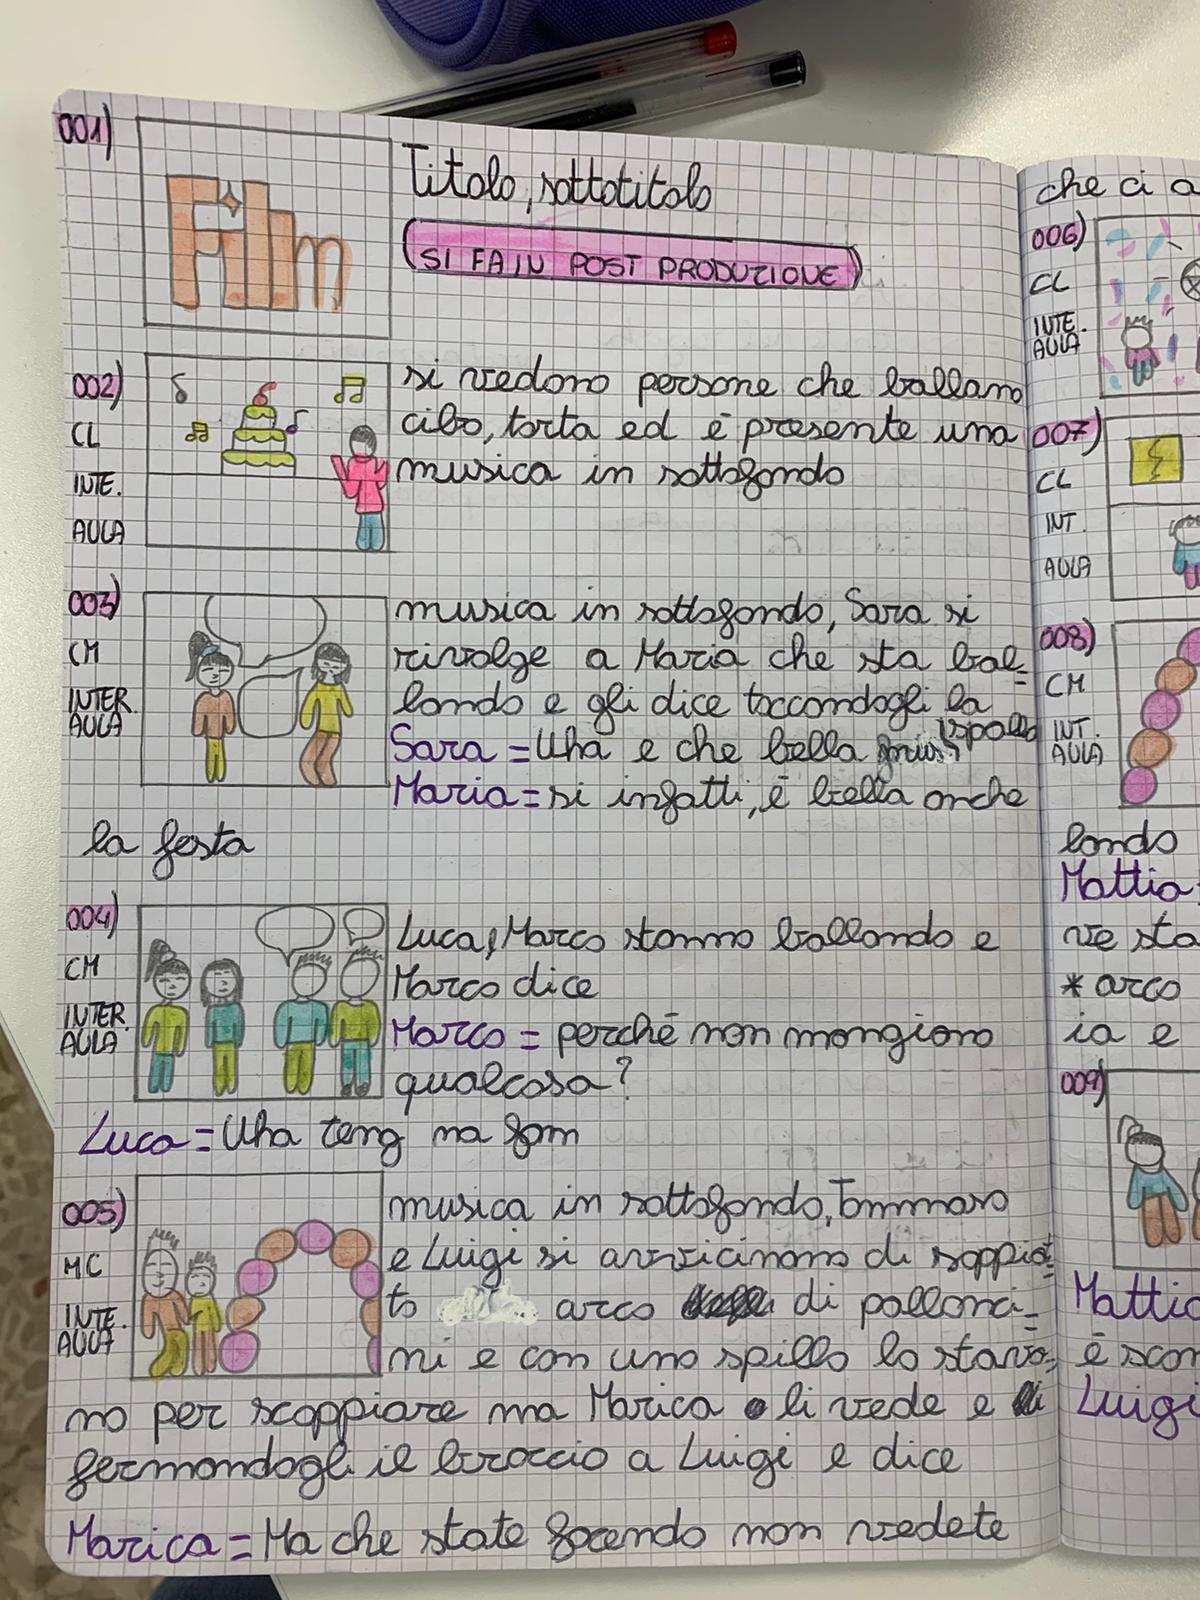 001)
Film
Titolo, sottotitolo
SI FA IN POST PRODUZIONE
002)
CL
INTE.
AULA
si vedono persone che ballano
cibo, torta ed è presente una
musica in sottofondo
003)
CM
INTER.
AULA
musica in sottofondo, Sara si
rivolge a Maria che sta bal=
lando e gli dice toccandogli la
spalla
Sara = Uha e che bella
Maria = si infatti, è bella anche
la festa
004)
CM
INTER.
AULA
Luca, Marco stanno ballando e
Marco dice
Marco = perché non mangiano
qualcosa?
Luca = Uha teng na fam
005)
MC
INTE.
AULA
musica in sottofondo, Tommaso
e Luigi si avvicinano di soppia=
to arco di pallonci=
ni e con uno spillo lo stava=
no per scoppiare ma Marica li vede e
fermandogli il braccio a Luigi e dice
Marica = Ma che state facendo non vedete
che ci a
006)
CL
INTE.
AULA
007)
CL
INT.
AULA
008)
CM
INT.
AULA
lando
Mattia
ve sta
* arco
ia e
009)
Mattia
è scon
Luigi